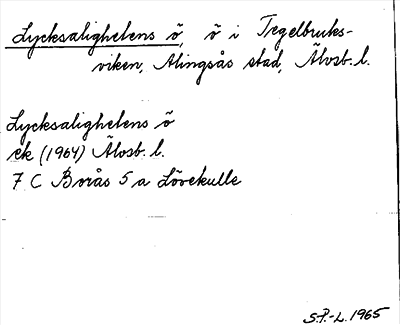 Lycksalighetens ö, ö i Tegelbruks-
viken, Alingsås stad, Älvsb. l.
Lycksalighetens ö
ek (1964) Älvsb. l.
7 C Borås 5 a Lövekulle
S.P.-L. 1965